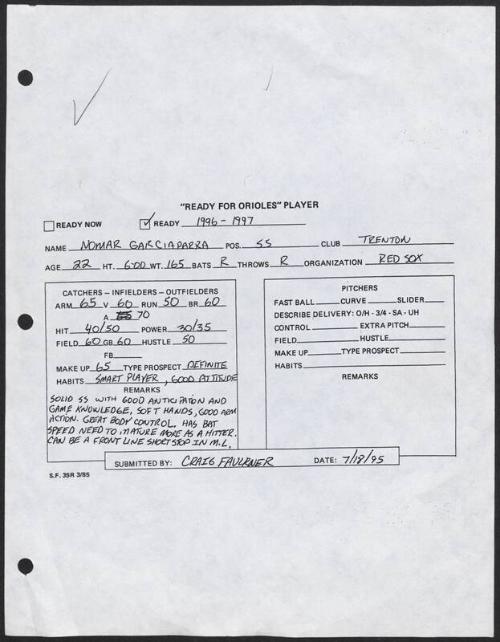 "READY FOR ORIOLES" PLAYER
READY NOW ✓ READY 1996 - 1997
NAME NOMAR GARCIAPARRA POS. SS CLUB TRENTON
AGE 22 HT. 6-00 WT. 165 BATS R THROWS R ORGANIZATION RED SOX
CATCHERS – INFIELDERS – OUTFIELDERS
ARM 65 V 60 RUN 50 BR 60
A 70
HIT 40/50 POWER 30/35
FIELD 60 GB 60 HUSTLE 50
FB
MAKE UP 65 TYPE PROSPECT DEFINITE
HABITS SMART PLAYER, GOOD ATTITUDE
REMARKS
SOLID SS WITH GOOD ANTICIPATION AND
GAME KNOWLEDGE, SOFT HANDS, GOOD ARM
ACTION. GREAT BODY CONTROL. HAS BAT
SPEED NEED TO MATURE MORE AS A HITTER.
CAN BE A FRONT LINE SHORTSTOP IN M.L.
PITCHERS
FAST BALL CURVE SLIDER
DESCRIBE DELIVERY: O/H - 3/4 - SA - UH
CONTROL EXTRA PITCH
FIELD HUSTLE
MAKE UP TYPE PROSPECT
HABITS
REMARKS
SUBMITTED BY: CRAIG FAULKNER DATE: 7/18/95
S.F. 35R 3/85